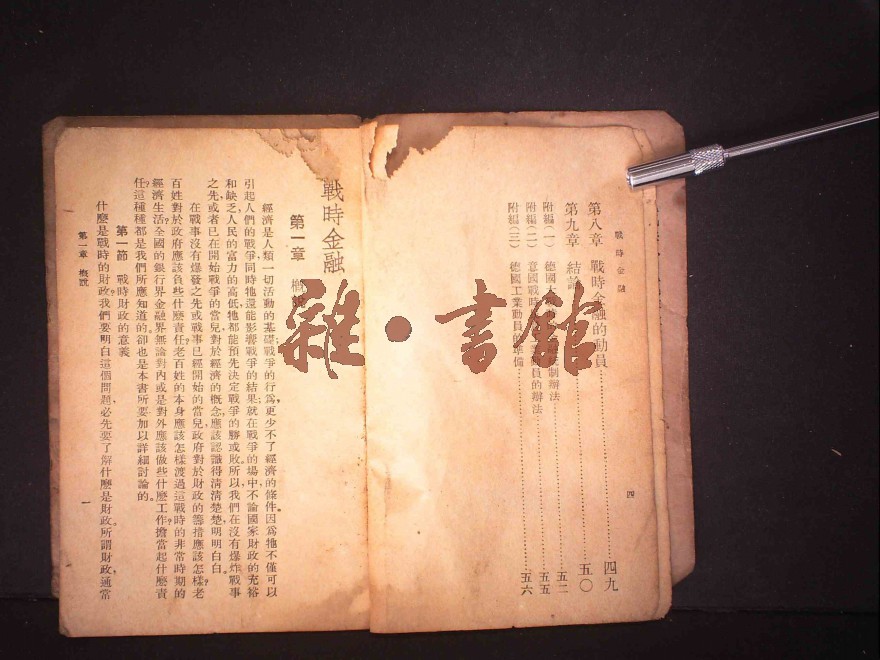 戰時金融
第八章 戰時金融的動員…四九
第九章 結論…五〇
附編(一) 德國 制辦法…五二
附編(二) 意國戰時 員的辦法…五五
附編(三) 德國工業動員的準備…五六
四
戰時金融
第一章 概說
經濟是人類一切活動的基礎;戰爭的行爲,更少不了經濟的條件。因爲牠不僅可以
引起人們的戰爭,同時牠還能影響戰爭的結果;就在戰爭的場中,不論國家財政的充裕
和缺乏,人民的富力的高低,牠都能預先決定戰爭的勝或敗。所以我們在沒有爆炸戰事
之先,或者已在開始戰爭的當兒,對於經濟的概念,應該認識得清清楚楚,明明白白。
在戰事沒有爆發之先,或戰事已經開始的當兒,政府對於財政的籌措應該怎樣?老
百姓對於政府應該負些什麼責任?老百姓的本身,應該怎樣渡過這戰時的非常時期的
經濟生活?全國的銀行界金融界,無論對內或是對外,應該做些什麼工作,擔當起什麼責
任?這種種都是我們所應知道的,卻也是本書所要加以詳細討論的。
第一節 戰時財政的意義
什麼是戰時的財政?我們要明白這個問題,必先要了解什麼是財政。所謂財政,通常
第一章 概說
一
雜·書館